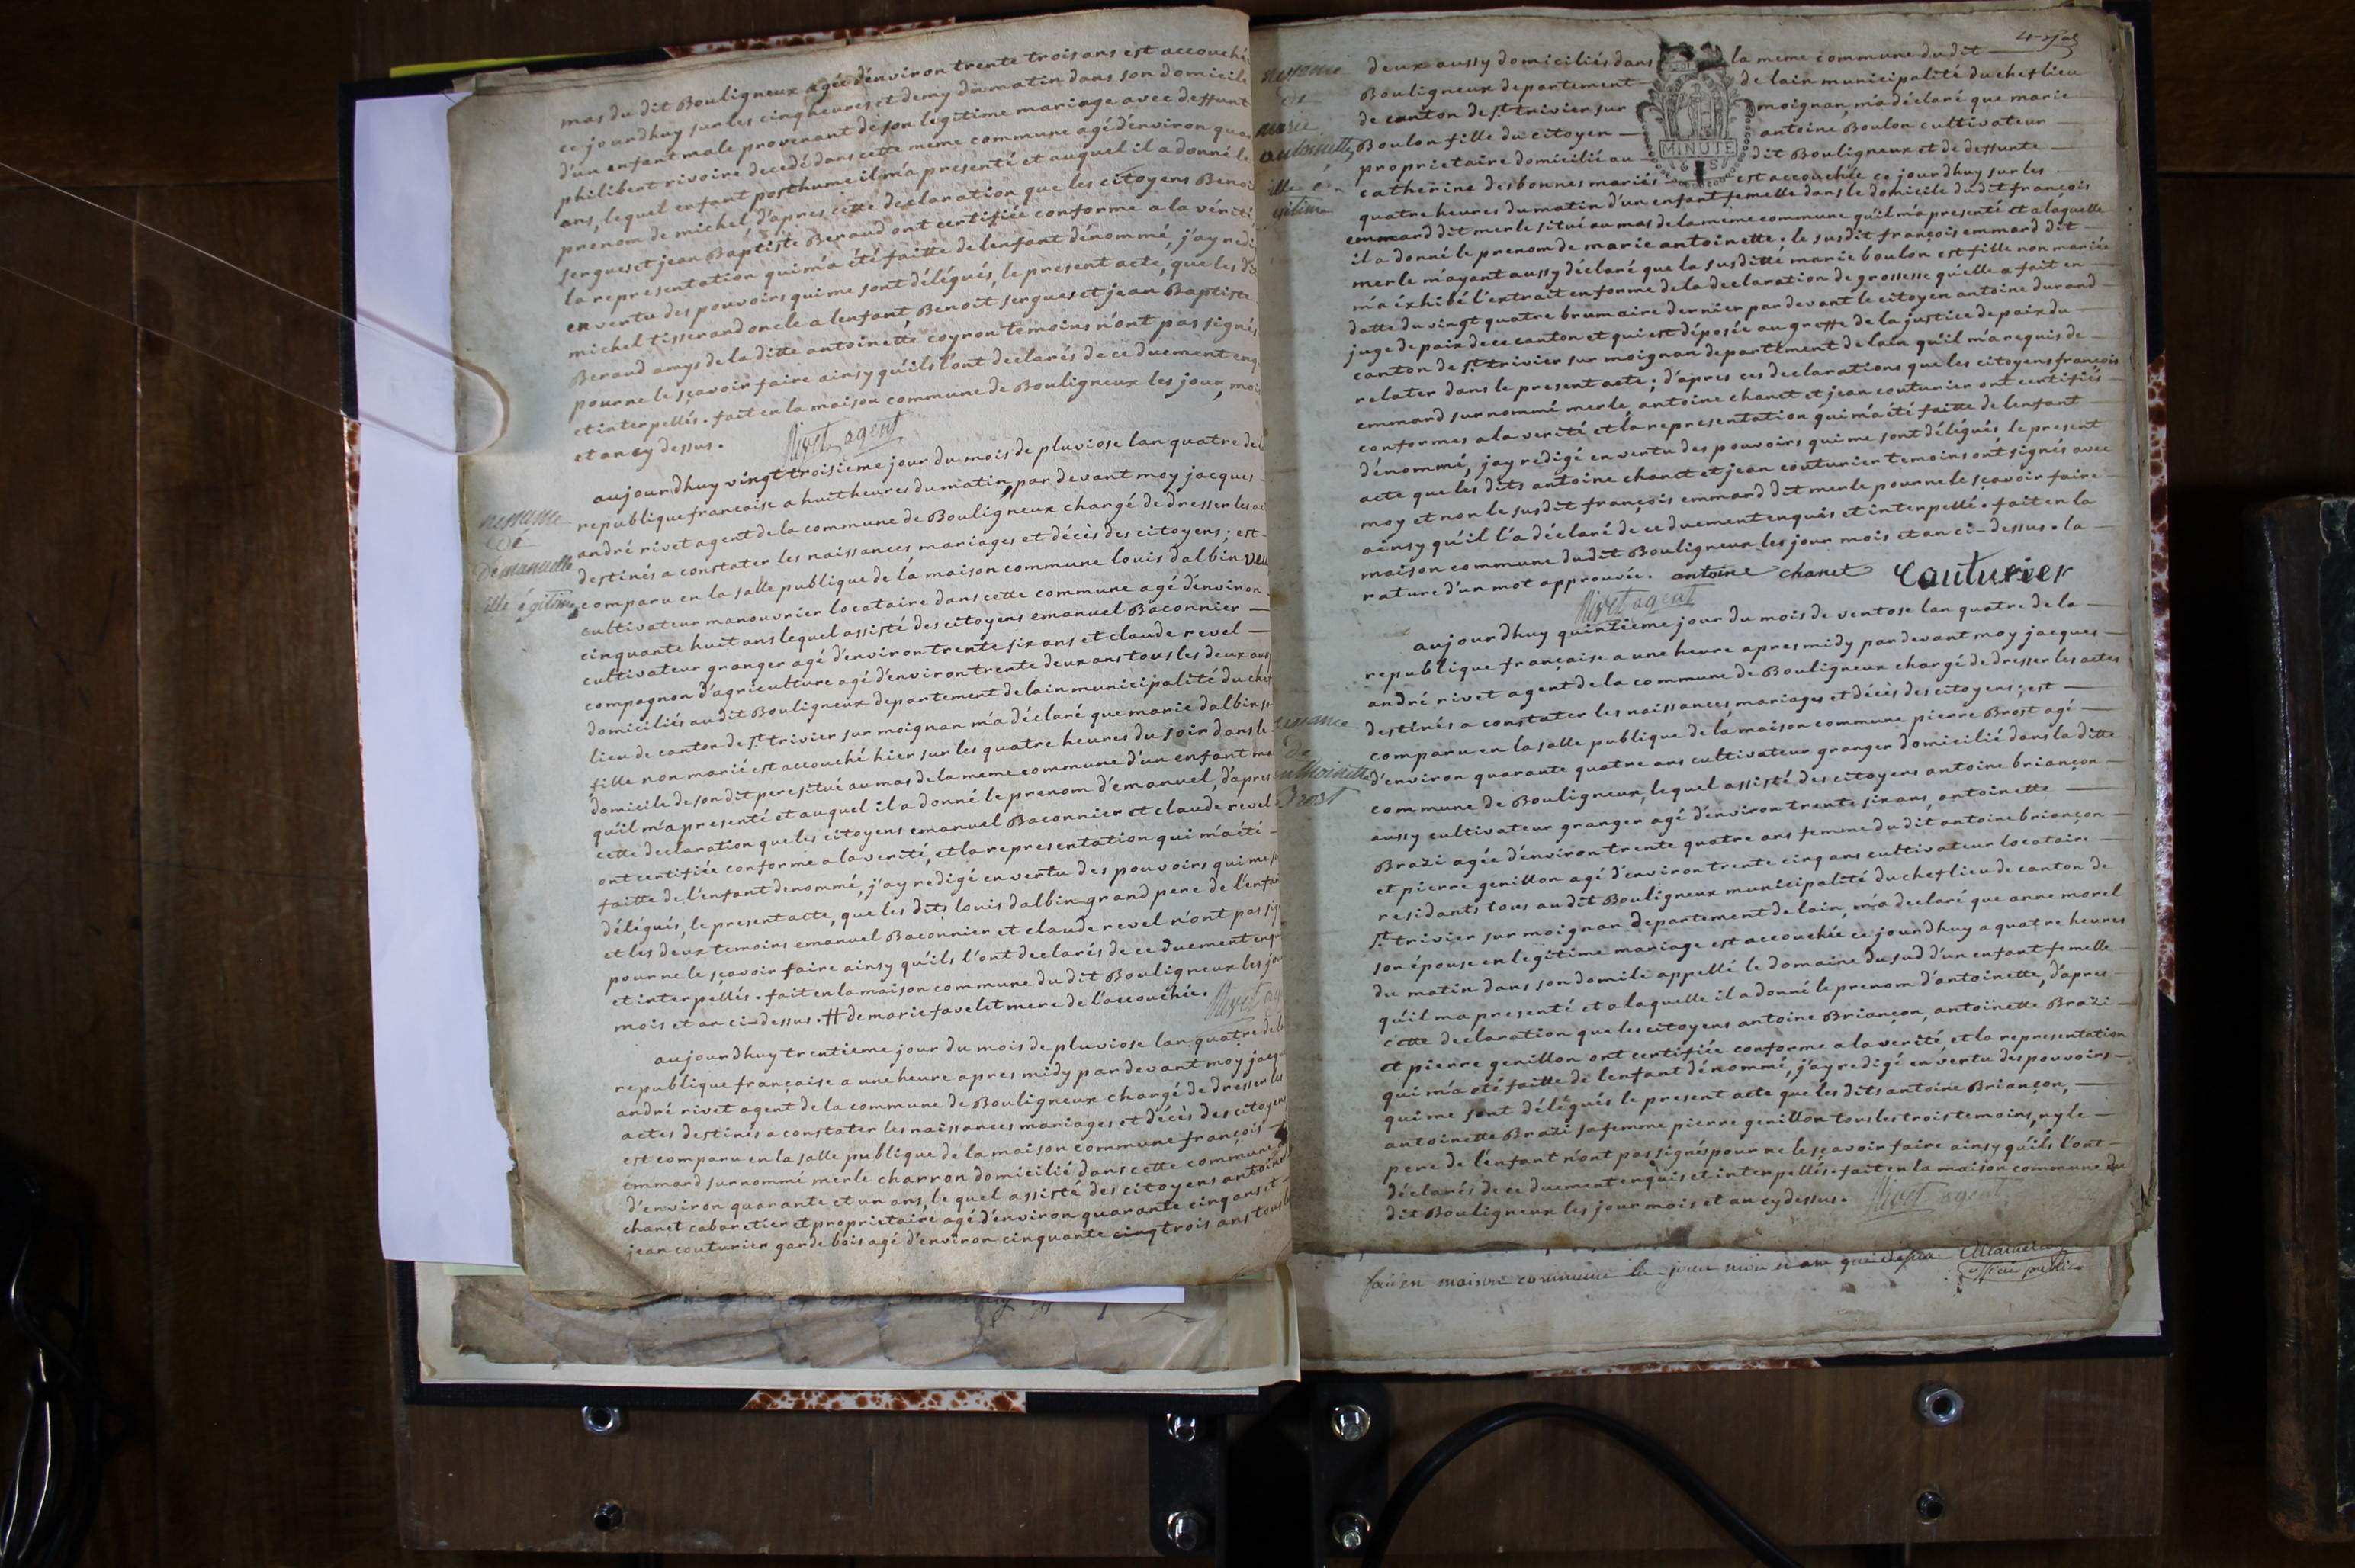 mas du dit Bouligneux agée d'environ trente trois ans est accouchée
ce jourdhuy sur les cinq heures et demy du matin dans son domicile
d'un enfant male provenant de son legitime mariage avec deffunt
philibert rivoire decedé dans cette meme commune agé d'environ qua
ans, lequel enfant posthume il m'a presenté et auquel il a donné le
prenom de michel, d'apres cette declaration que les citoyens Benoit
sergues et jean Baptiste Beraud ont certifiée conforme a la vérité
la representation qui m'a été faitte de l'enfant dénommé, j'ay redi
en vertu des pouvoirs qui me sont délégués, le present acte, que les d
michel tisserand oncle a lenfant, Benoit sergues et jean Baptiste
Beraud amys de la ditte antoinette coyron temoins n'ont pas signés
pour ne le sçavoir faire ainsy qu'ils l'ont declarés de ce duement enq
et interpellés. fait en la maison commune de Bouligneux les jour, mois
et an cy dessus. Rivet agent
aujourdhuy vingt troisieme jour du mois de pluviose lan quatre de la
republique francaise a huit heures du matin, par devant moy jacques
andré rivet agent de la commune de Bouligneux chargé de dresser les ac
destinés a constater les naissances mariages et décès des citoyens; est
comparu en la salle publique de la maison commune louis dalbin veu
cultivateur manouvrier locataire dans cette commune agé d'environ
cinquante huit ans lequel assisté des citoyens emanuel Baconnier
cultivateur granger agé d'environ trente six ans et claude revel
compagnon d'agriculture agé d'environ trente deux ans tous les deux aus
domiciliés audit Bouligneux departement de lain municipalité du chef
lieu de canton de st trivier sur moignan m'a déclaré que marie dalbin sa
fille non marié est accouché hier sur les quatre heures du soir dans le
domicile de son dit pere situé au mas de la meme commune d'un enfant ma
qu'il m'a presenté et auquel il a donné le prenom d'emanuel, d'apres
cette declaration que les citoyens emanuel Baconnier et claude revel
ont certifiée conforme a la verité, et la representation qui m'a été
faitte de l'enfant denommé, j'ay redigé en vertu des pouvoirs qui me s
délégués, le present acte, que les dits louis dalbin grand pere de l'enfan
et les deux temoins emanuel Baconnier et claude revel n'ont pas sig
pour ne le sçavoir faire ainsy qu'ils l'ont declarés de ce duement enqu
et interpellés. fait en la maison commune du dit Bouligneux les jou
mois et an ci-dessus. # de marie favelet mere de l'accouchée. Rivet ag
aujourdhuy trentieme jour du mois de pluviose lan quatre de la
republique francaise a une heure apres midy par devant moy jacqu
andré rivet agent de la commune de Bouligneux chargé de dresser les
actes destinés a constater les naissances mariages et décès des citoyens
est comparu en la salle publique de la maison commune françois
emmard surnommé merle charron domicilié dans cette commune
d'environ quarante et un ans, le quel assisté des citoyens antoine
chanet cabaretier et proprietaire agé d'environ quarante cinq ans et
jean couturier garde bois agé d'environ cinquante cinq trois ans tous l
nessance
de
demanuelle
ille égitime
deux aussy domiciliés dans la meme commune du dit
Bouligneux departement de lain municipalité du chef lieu
de canton de st trivier sur moignan, m'a déclaré que marie
Boulon fille du citoyen antoine Boulon cultivateur
MINUTE
proprietaire domicilié au dit Bouligneux et de deffunte
catherine desbonnes mariés est accouchée ce jourdhuy sur les
quatre heures du matin d'un enfant femelle dans le domicile du dit françois
emmard dit merle situé au mas de la meme commune qu'il m'a presenté et a laquelle
il a donné le prenom de marie antoinette; le susdit françois emmard dit
merle m'ayant aussy déclaré que la susditte marie boulon est fille non mariée
m'a éxhibé l'extrait en forme de la declaration de grossesse qu'elle a fait en
datte du vingt quatre brumaire dernier par devant le citoyen antoine durand
juge de paix de ce canton et qui est déposée au greffe de la justice de paix du
canton de st trivier sur moignan departement de lain qu'il m'a requis de
relater dans le present acte; d'apres ces declarations que les citoyens françois
emmard surnommé merle, antoine chanet et jean couturier ont certifiés
conformes a la verité et la representation qui m'a été faitte de lenfant
dénommé, jay redigé en vertu des pouvoirs qui me sont délégués le present
acte que les dits antoine chanet et jean couturier temoins ont signés avec
moy et non le susdit françois emmard dit merle pour ne le sçavoir faire
ainsy qu'il l'a déclaré de ce duement enquis et interpellé. fait en la
maison commune du dit Bouligneux les jour mois et an ci-dessus. la
rature d'un mot approuvée. antoine chanet Couturier
Rivet agent
aujourdhuy quinzieme jour du mois de ventose lan quatre de la
republique francaise a une heure apres midy par devant moy jacques
andré rivet agent de la commune de Bouligneux chargé de dresser les actes
destinés a constater les naissances, mariages et décès des citoyens; est
comparu en la salle publique de la maison commune pierre Brost agé
d'environ quarante quatre ans cultivateur granger domicilié dans la ditte
commune de Bouligneux, lequel assisté des citoyens antoine briançon
aussy cultivateur granger agé d'environ trente six ans, antoinette
Brazi agée d'environ trente quatre ans femme du dit antoine briançon
et pierre genillon agé d'environ trente cinq ans cultivateur locataire
residants tous au dit Bouligneux municipalité du chef lieu de canton de
st trivier sur moignan departement de lain, m'a declaré que anne morel
son épouse en legitime mariage est accouchée ce jourdhuy a quatre heures
du matin dans son domile appellé le domaine du sud d'un enfant femelle
qu'il m a presenté et a laquelle il a donné le prenom d'antoinette, d'apres
cette declaration que les citoyens antoine Briançon, antoinette Brazi
et pierre genillon ont certifiée conforme a la verité et la representation
qui m'a été faitte de lenfant dénommé, j'ay redigé en vertu des pouvoirs
qui me sont délégués le present acte que les dits antoine Briançon,
antoinette Brazi sa femme pierre genillon tous les trois temoins, ny le
pere de l'enfant n'ont pas signés pour ne le sçavoir faire ainsy qu'ils l'ont
déclarés de ce duement enquis et interpellés. fait en la maison commune du
dit Bouligneux les jour mois et an cy dessus. Rivet agent
nessance
de
marie
antoinette
ille
égitime
nessance
de
anthoinette
Brost
fait en maison commune les jour mois et an que dessus